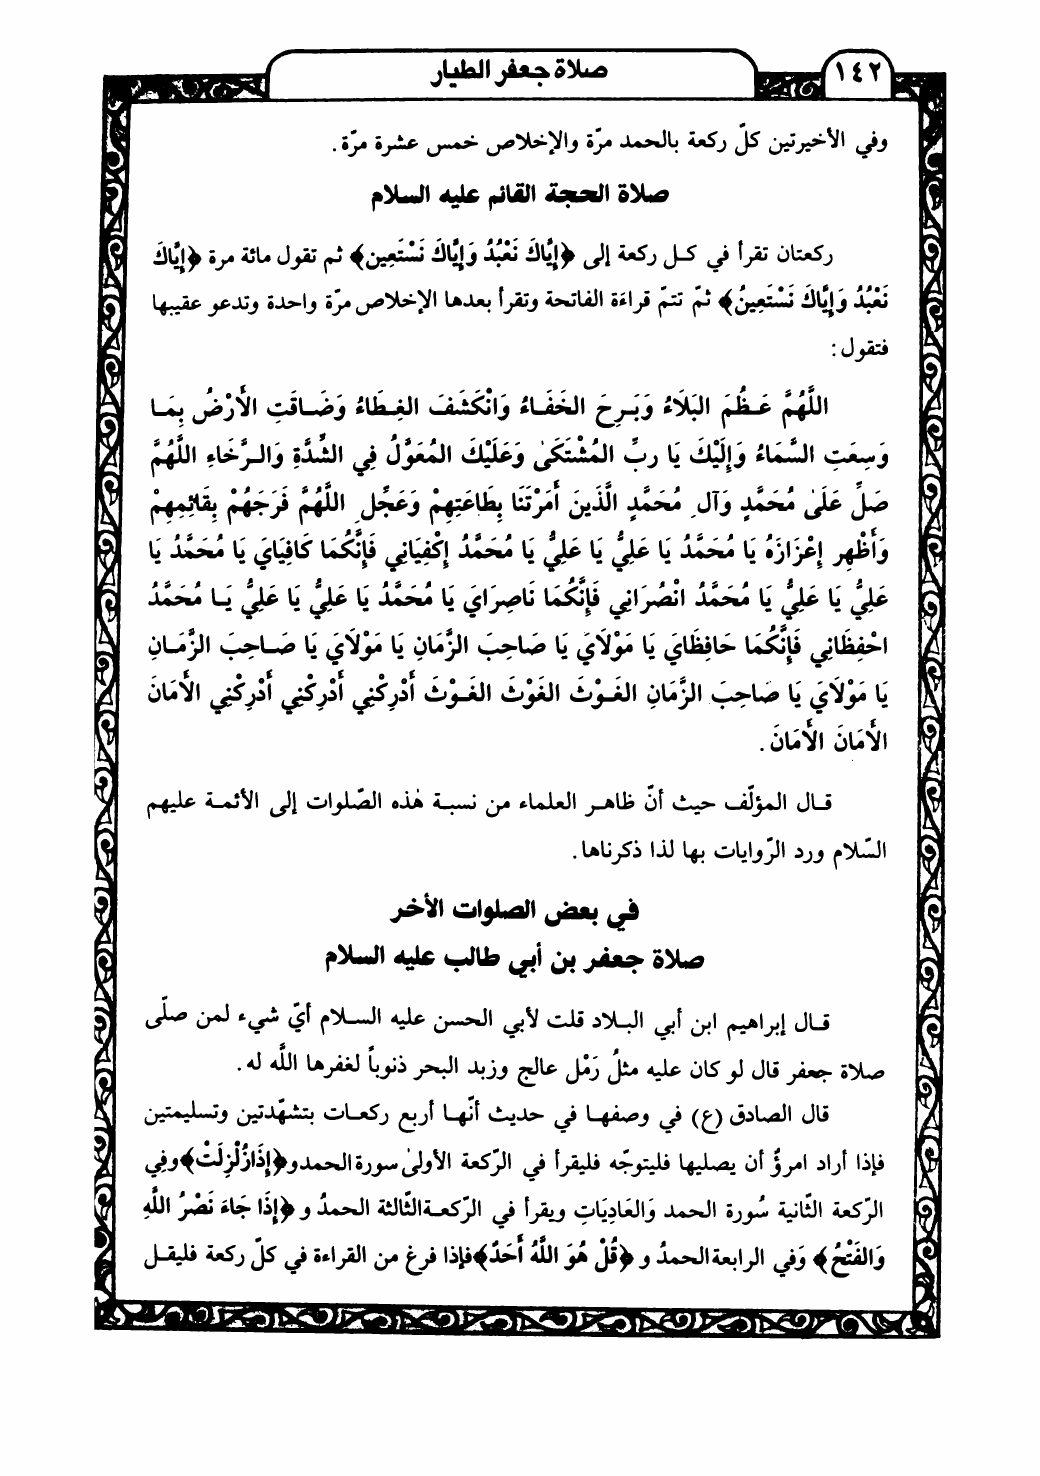 ١٤٢
صلاة جعفر الطيار
وفي الأخيرتين كلّ ركعة بالحمد مرّة والإخلاص خمس عشرة مرّة.
صلاة الحجة القائم عليه السلام
ركعتان تقرأ في كل ركعة إلى ﴿إِيَّاكَ نَعْبُدُ وَإِيَّاكَ نَسْتَعِين﴾ ثم تقول مائة مرة ﴿إِيَّاكَ
نَعْبُدُ وَإِيَّاكَ نَسْتَعِينُ﴾ ثمّ تتمّ قراءَة الفاتحة وتقرأ بعدها الإخلاص مرّة واحدة وتدعو عقيبها
فتقول:
اللَّهُمَّ عَظُمَ البَلَاءُ وَبَرِحَ الخَفَاءُ وَانْكَشَفَ الغِطَاءُ وَضَاقَتِ الأَرْضُ بِمَا
وَسِعَتِ السَّمَاءُ وَإِلَيْكَ يَا ربِّ المُشْتَكَىٰ وَعَلَيْكَ المُعَوَّلُ فِي الشِّدَّةِ وَالرَّخَاءِ اللَّهُمَّ
صَلِّ عَلَىٰ مُحَمَّدٍ وَآلِ مُحَمَّدٍ الَّذَينَ أَمَرْتَنَا بِطَاعَتِهِمْ وَعَجِّلِ اللَّهُمَّ فَرَجَهُمْ بِقَائِمِهِمْ
وَأَظْهِرِ إِعْزَازَهُ يَا مُحَمَّدُ يَا عَلِيُّ يَا عَلِيُّ يَا مُحَمَّدُ إِكْفِيَانِي فَإِنَّكُمَا كَافِيَايَ يَا مُحَمَّدُ يَا
عَلِيُّ يَا عَلِيُّ يَا مُحَمَّدُ انْصُرَانِي فَإِنَّكُمَا نَاصِرَايَ يَا مُحَمَّدُ يَا عَلِيُّ يَا عَلِيُّ يَا مُحَمَّدُ
احْفِظَانِي فَإِنَّكُمَا حَافِظَايَ يَا مَوْلَايَ يَا صَاحِبَ الزَّمَانِ يَا مَوْلَايَ يَا صَاحِبَ الزَّمَانِ
يَا مَوْلَايَ يَا صَاحِبَ الزَّمَانِ الغَوْثَ الغَوْثَ الغَوْثَ أَدْرِكْنِي أَدْرِكْنِي أَدْرِكْنِي الأَمَانَ
الأَمَانَ الأَمَانَ.
قال المؤلّف حيث أنّ ظاهر العلماء من نسبة هٰذه الصّلوات إلى الأئمة عليهم
السّلام ورد الرّوايات بها لذا ذكرناها.
في بعض الصلوات الأخر
صلاة جعفر بن أبي طالب عليه السلام
قال إبراهيم ابن أبي البلاد قلت لأبي الحسن عليه السلام أيّ شيء لمن صلّى
صلاة جعفر قال لو كان عليه مثلُ رَمْل عالج وزبد البحر ذنوباً لغفرها اللَّه له.
قال الصادق (ع) في وصفها في حديث أنّها أربع ركعات بتشهّدتين وتسليمتين
فإذا أراد امرؤٌ أن يصليها فليتوجّه فليقرأ في الرّكعة الأولىٰ سورة الحمد و﴿إِذَا زُلْزِلَتْ﴾ وفي
الرّكعة الثّانية سُورة الحمد وَالعَادِيَاتِ ويقرأ في الرّكعة الثّالثة الحمدُ و ﴿إِذَا جَاءَ نَصْرُ اللَّهِ
وَالفَتْحُ﴾ وَفي الرابعة الحمدُ و ﴿قُلْ هُوَ اللَّهُ أَحَدٌ﴾ فإذا فرغ من القراءة في كلّ ركعة فليقل